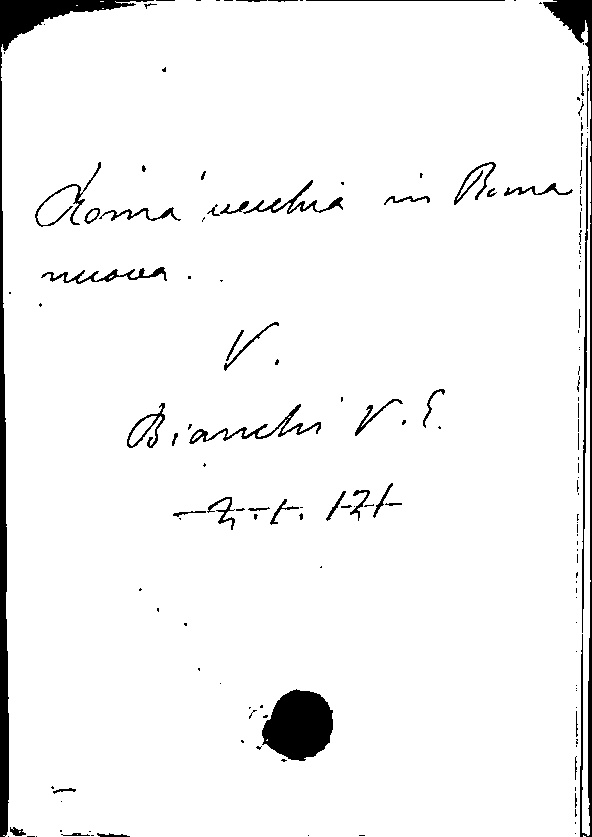 Roma vecchia in Roma
nuova.
V.
Bianchi V. E.
2. I. 121